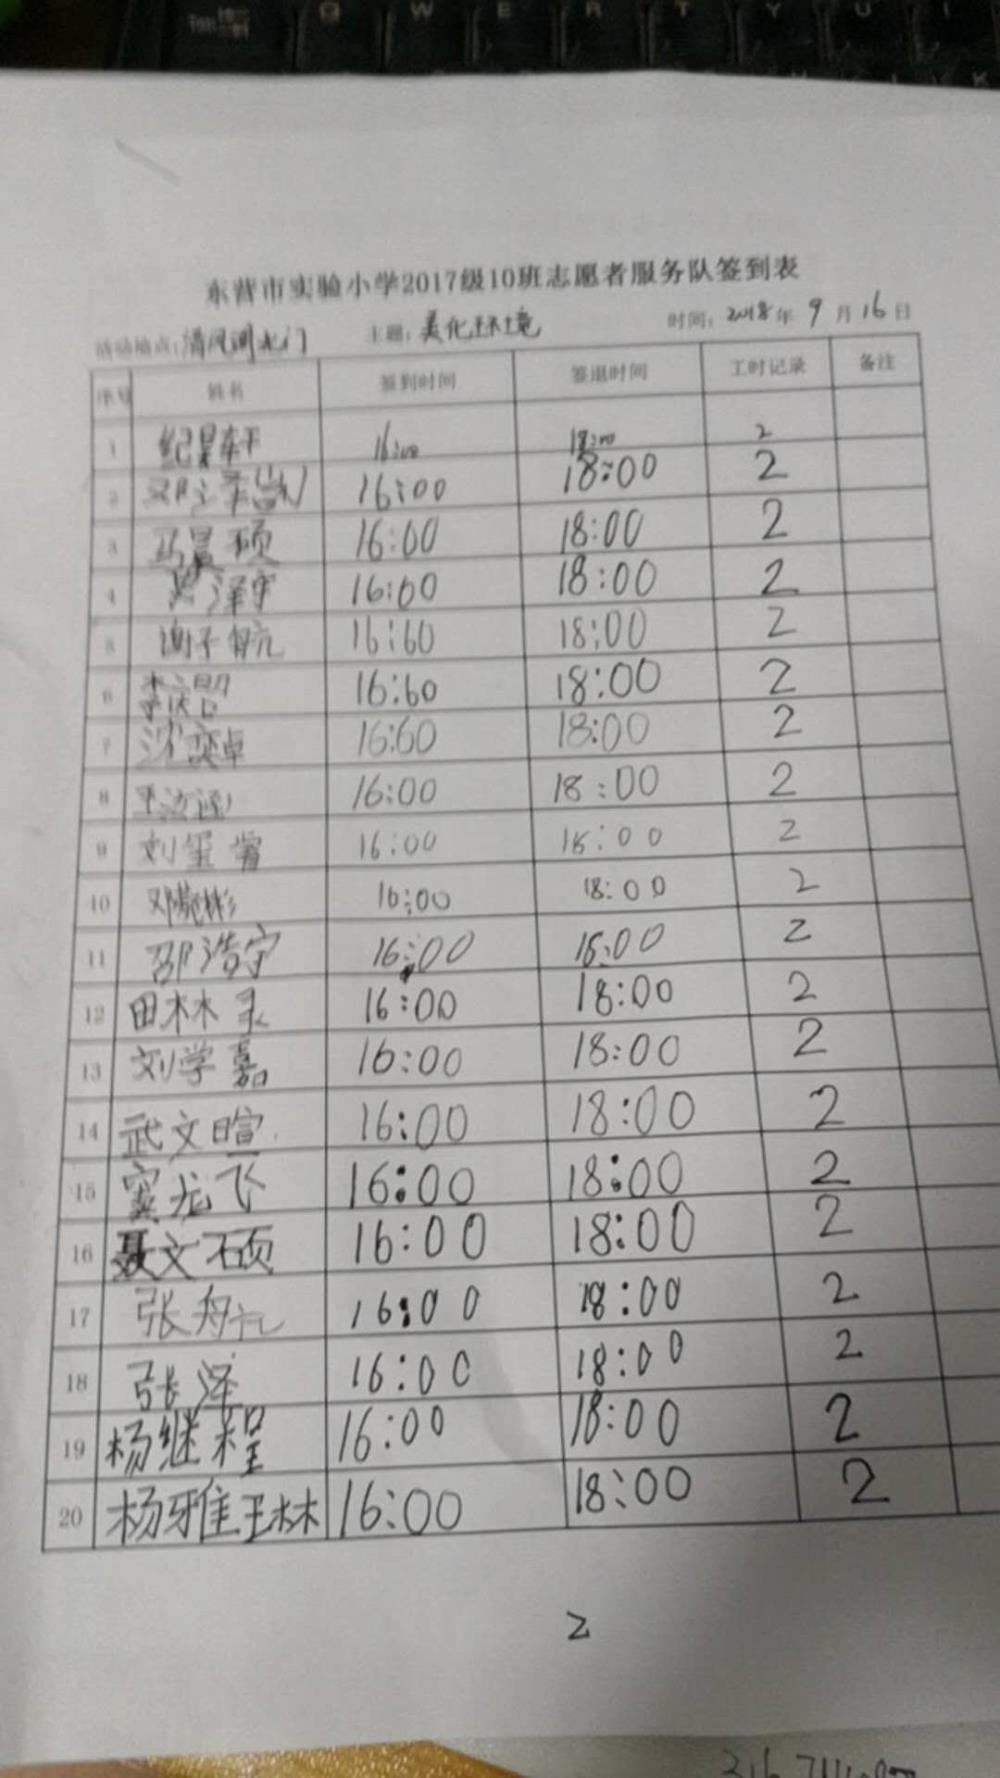 东营市实验小学2017级10班志愿者服务队签到表
活动地点：清风湖水门 主题：美化环境 时间：2018年9月16日
序号 姓名 签到时间 签退时间 工时记录 备注
1 纪昊轩 16:00 18:00 2
2 16:00 18:00 2
3 马昊硕 16:00 18:00 2
4 吴泽宇 16:00 18:00 2
5 谢子航 16:60 18:00 2
6 16:60 18:00 2
7 沈奕卓 16:60 18:00 2
8 16:00 18:00 2
9 刘玺睿 16:00 18:00 2
10 邓懿彬 16:00 18:00 2
11 邵浩宁 16:00 18:00 2
12 田林灵 16:00 18:00 2
13 刘学嘉 16:00 18:00 2
14 武文暄 16:00 18:00 2
15 窦龙飞 16:00 18:00 2
16 聂文硕 16:00 18:00 2
17 张舟礼 16:00 18:00 2
18 张泽 16:00 18:00 2
19 杨继程 16:00 18:00 2
20 杨雅琳 16:00 18:00 2
2